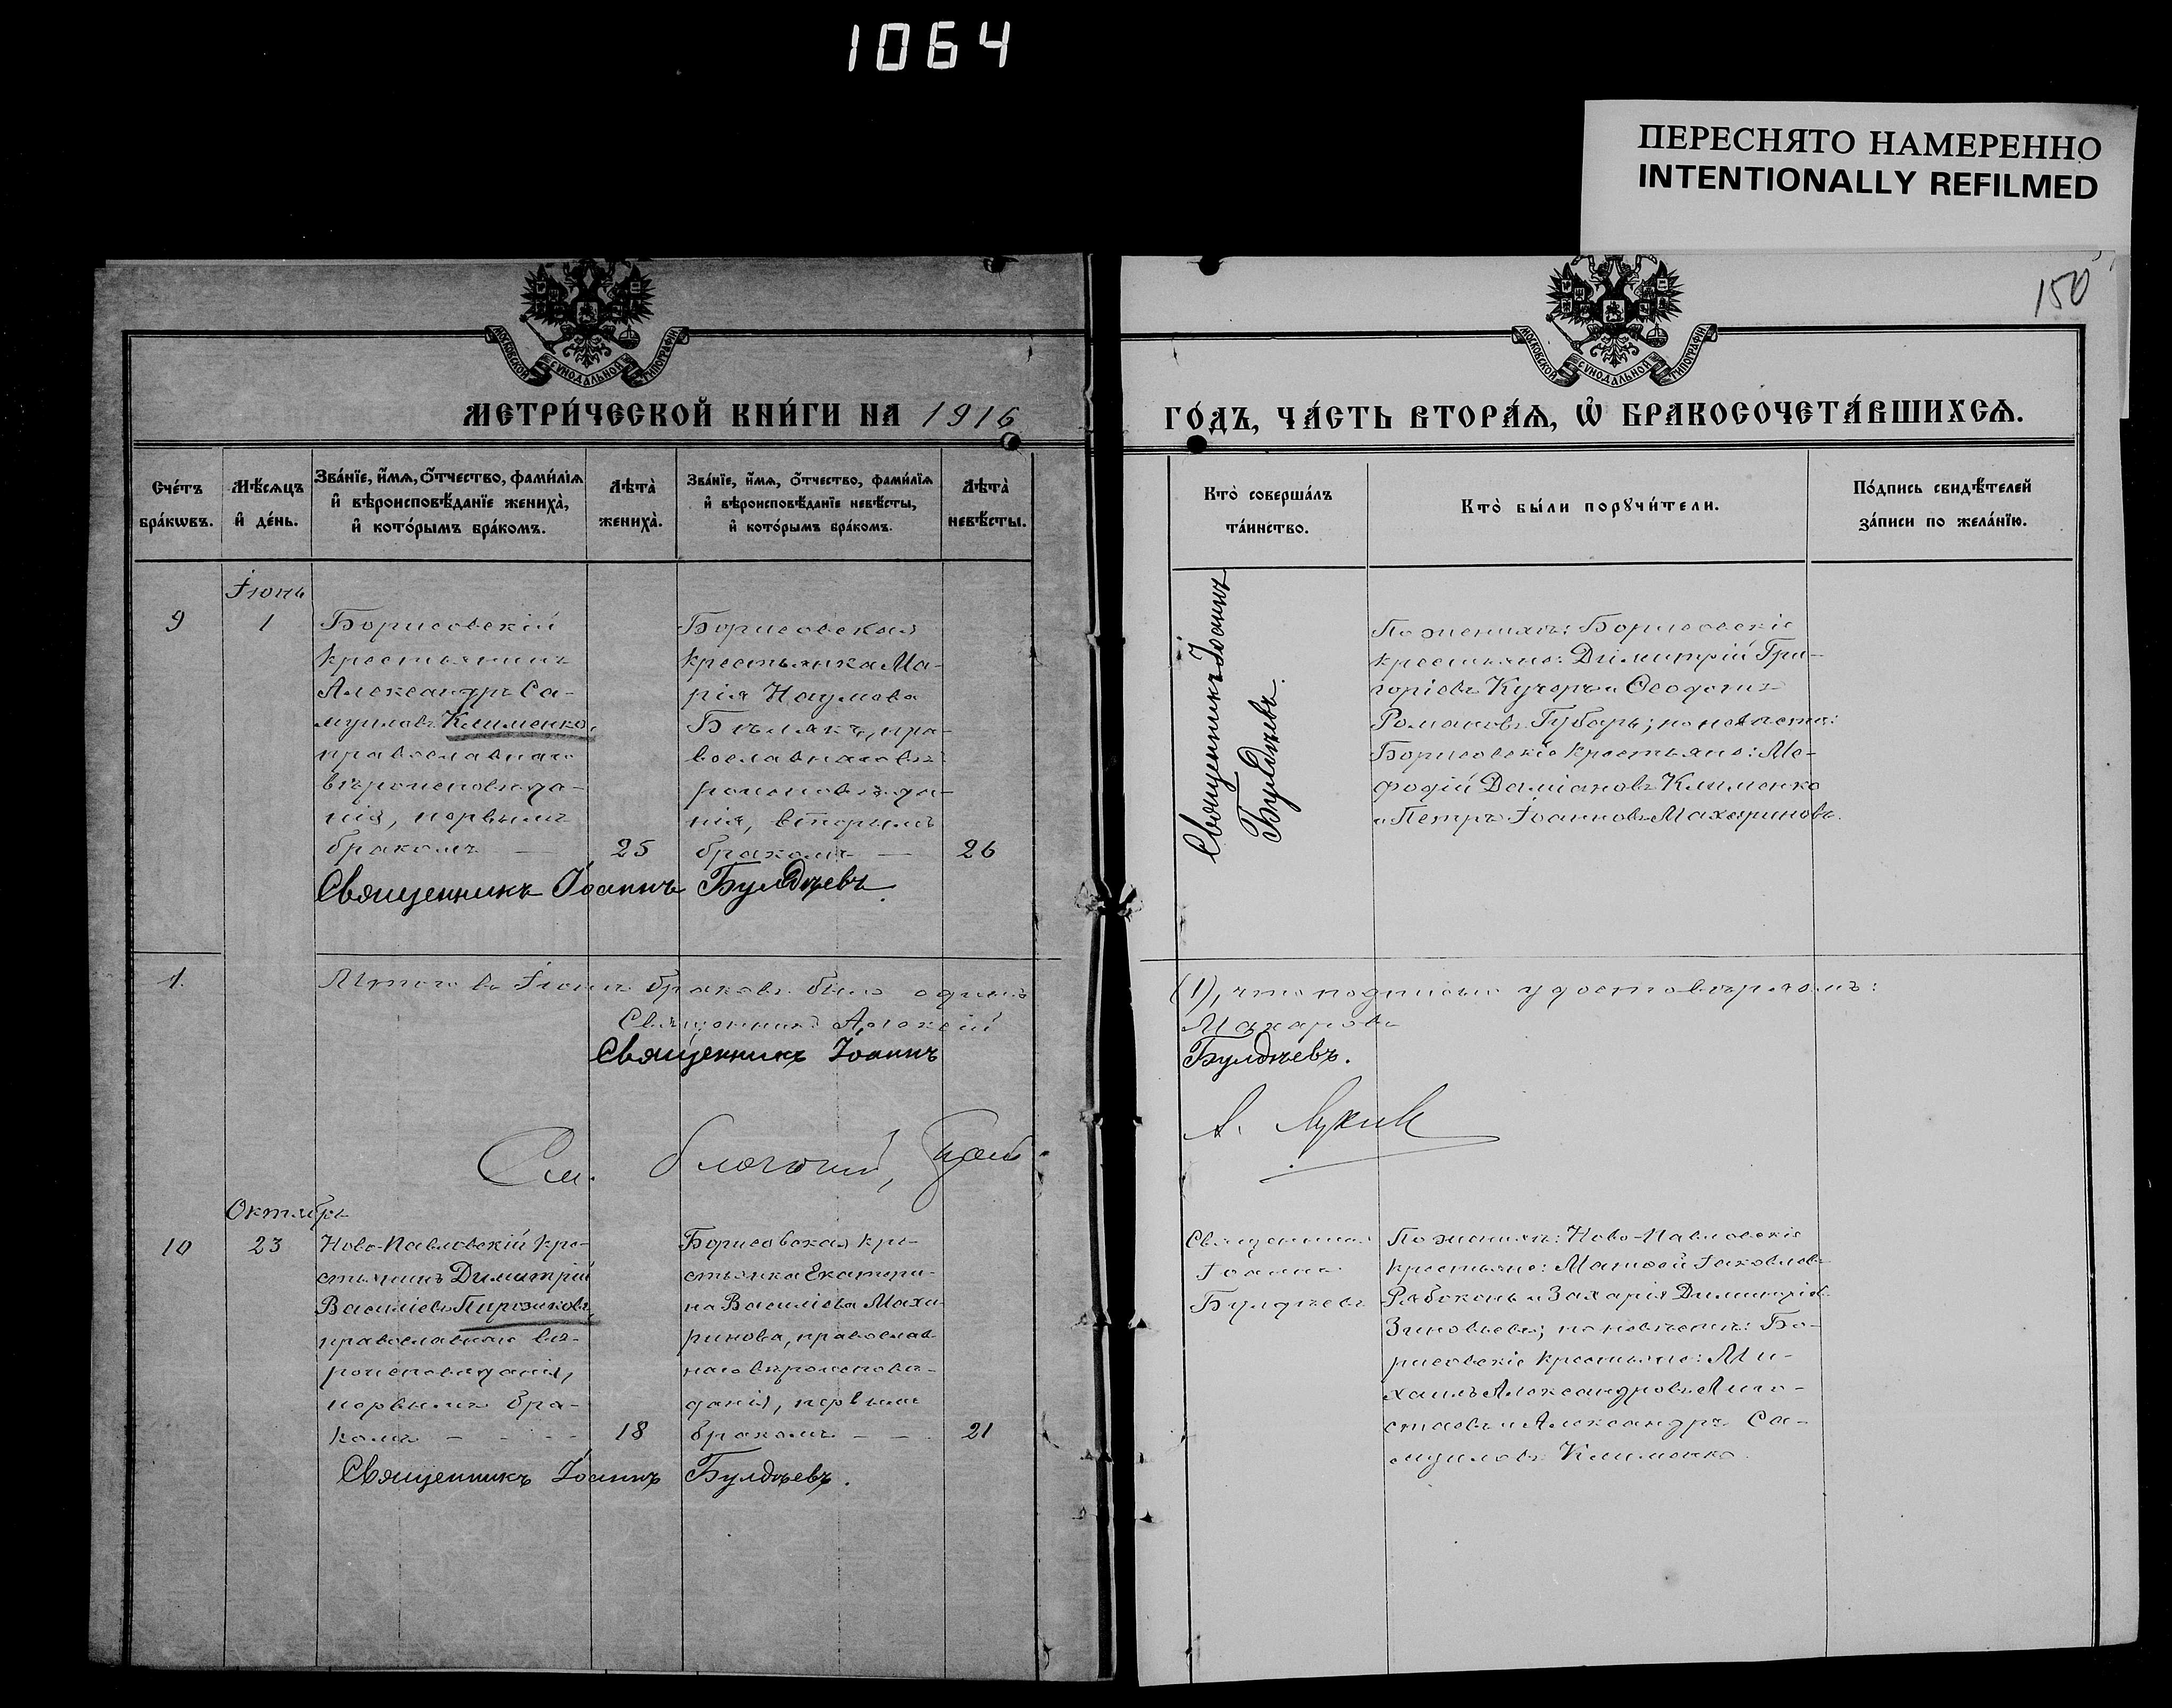 1064
ПЕРЕСНЯТО НАМЕРЕННО
INTENTIONALLY REFILMED
150
МОСКОВСКОЙ СѴНОДАЛЬНОЙ ТИПОГРАФІИ
МОСКОВСКОЙ СѴНОДАЛЬНОЙ ТИПОГРАФІИ
МЕТРИ́ЧЕСКОЙ КНИ́ГИ НА 1916
ГО́ДЪ, ЧА́СТЬ ВТОРА́Ѧ, Ѽ БРАКОСОЧЕТА́ВШИХСѦ.
Сче́тъ
бра́кѡвъ.
Мѣ́сѧцъ
и҆ де́нь.
Зва́нїе, и҆́мѧ, ѻ҆́тчество, фами́лїѧ
и҆ вѣроисповѣ́данїе жениха̀,
и҆ кото́рымъ бра́комъ.
Лѣта̀
жениха̀.
Зва́нїе, и҆́мѧ, ѻ҆́тчество, фами́лїѧ
и҆ вѣроисповѣ́данїе невѣ́сты,
и҆ кото́рымъ бра́комъ.
Лѣта̀
невѣ́сты.
Кто̀ соверша́лъ
та́инство.
Кто̀ бы́ли порꙋчи́тели.
По́дпись свидѣ́телей
за́писи по жела́нїю.
Іюнь
9
1
Борисовскій
крестьянинъ
Александръ Са-
муиловъ Клименко,
православнаго
вѣроисповѣда-
нія, первымъ
бракомъ —
25
Борисовская
крестьянка Ма-
рія Наумова
Бѣлякъ, пра-
вославнаго вѣ-
роисповѣда-
нія, вторымъ
бракомъ —
26
Священникъ Іоаннъ Булдѣевъ.
Священникъ Іоаннъ
Булдѣевъ.
По женихѣ: Борисовскіе
крестьяне: Димитрій Гри-
горіевъ Кучеръ и Ѳеодотъ
Романовъ Губарь; по невѣстѣ:
Борисовскіе крестьяне: Ме-
фодій Даміановъ Клименко
и Петръ Іоанновъ Махариновъ.
1.
Итого въ Іюнѣ браковъ было одинъ
(1), что подписью удостовѣряемъ:
Священникъ Алексій
Макаровъ
Священникъ Іоаннъ
Булдѣевъ.
См.
Октябрь
10
23
Ново-Павловскій кре-
стьянинъ Димитрій
Василіевъ Пирожковъ,
православнаго вѣ-
роисповѣданія,
первымъ бра-
комъ — - - -
18
Борисовская кре-
стьянка Екатери-
на Василіева Маха-
ринова, православ-
наго вѣроисповѣ-
данія, первымъ
бракомъ — —
21
Священникъ Іоаннъ Булдѣевъ.
Священникъ
Іоаннъ
Булдѣевъ
По женихѣ: Ново-Павловскіе
крестьяне: Матѳей Іаковлевъ
Рябоконь и Захарія Димитріев.
Зиновьевъ; по невѣстѣ: Бо-
рисовскіе крестьяне: Ми-
хаилъ Александровъ
и Александръ Са-
муиловъ Клименко